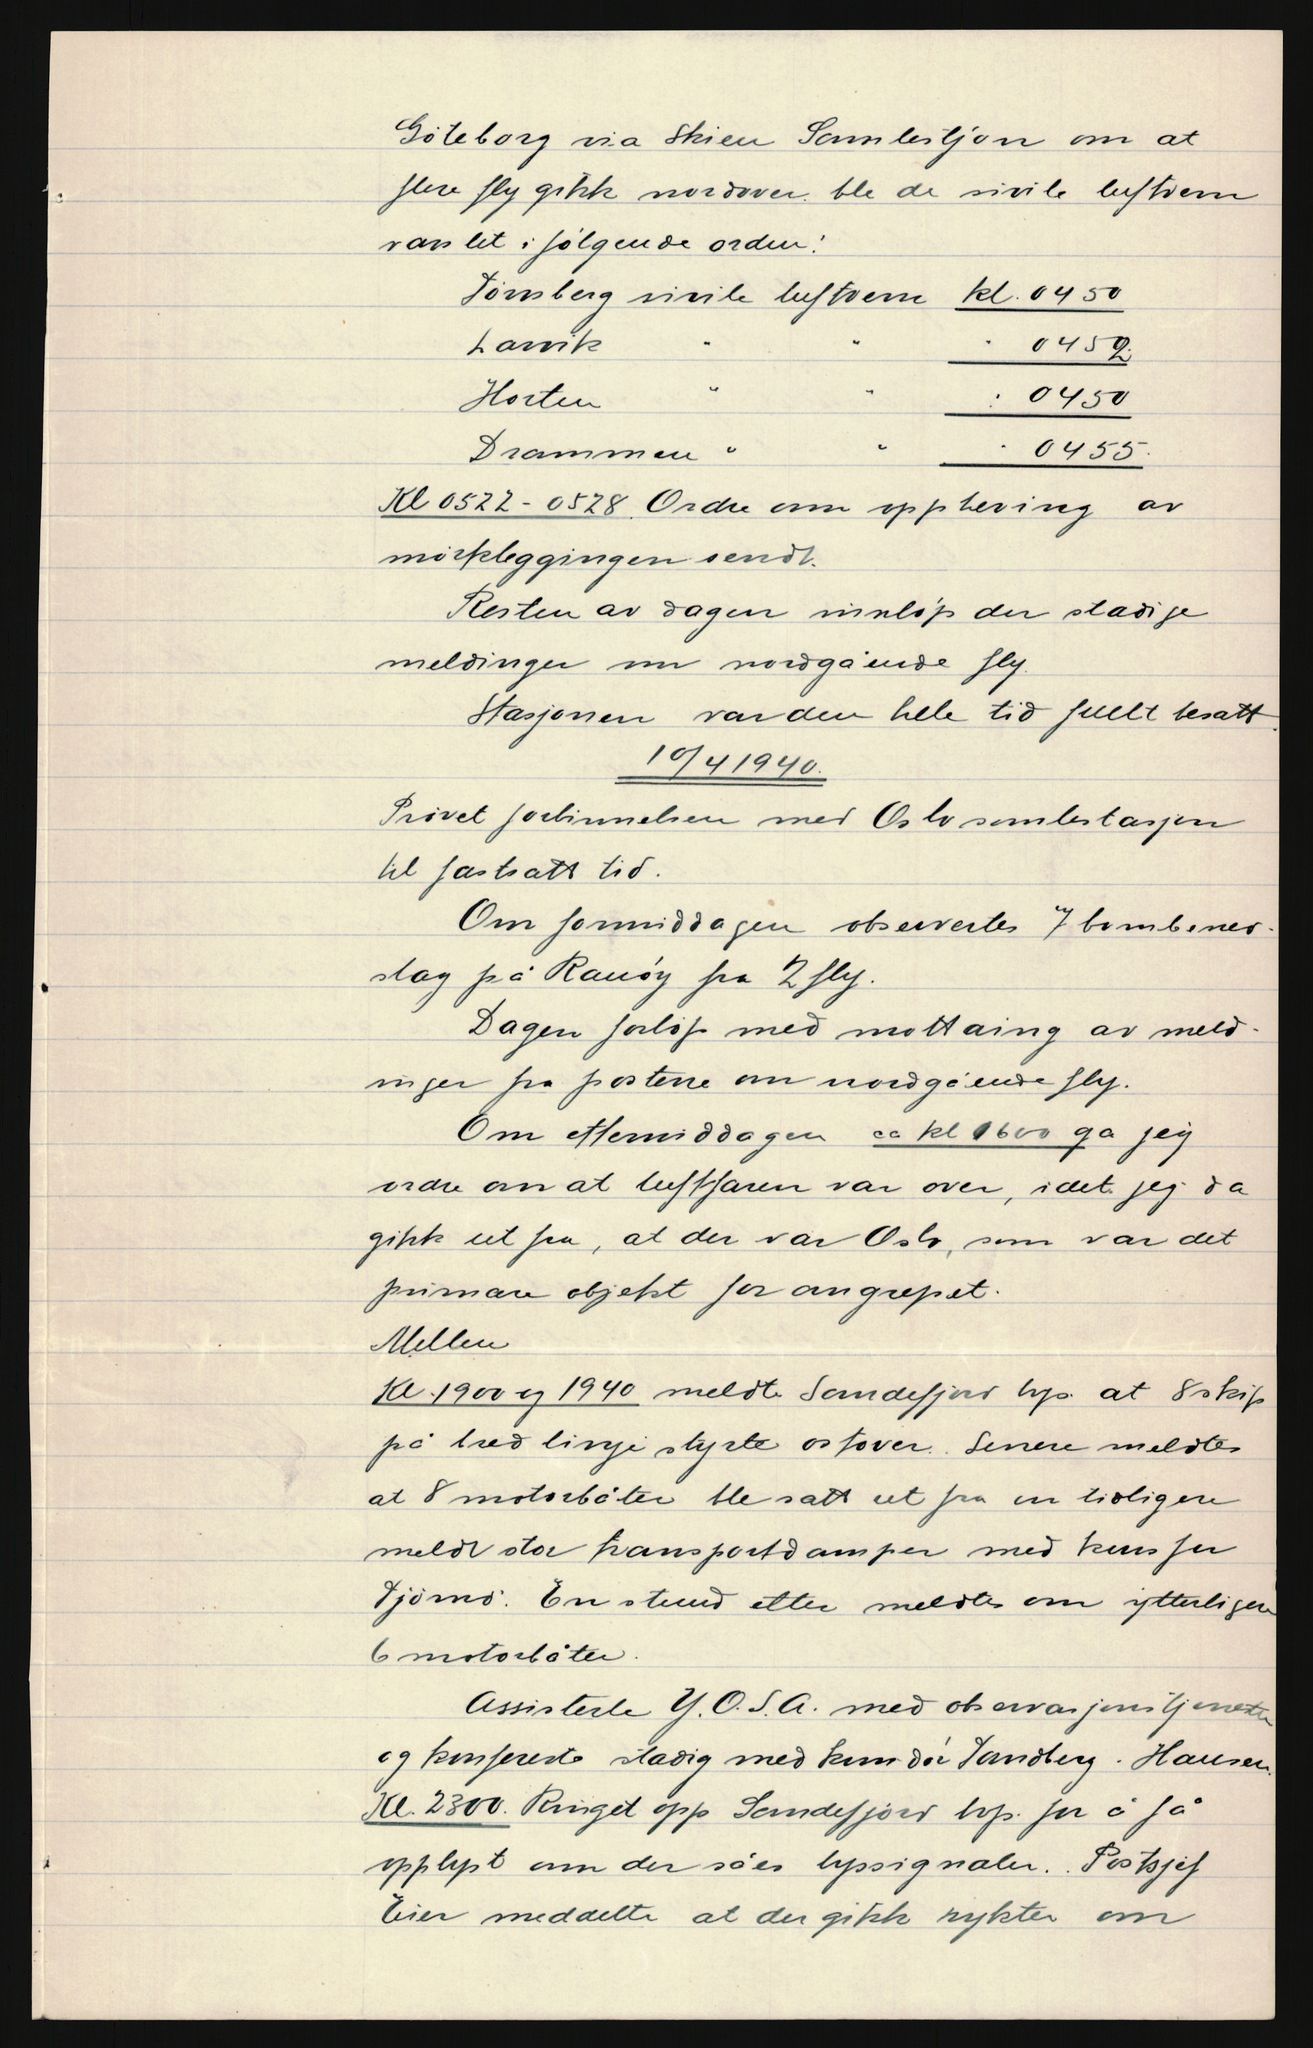 Göteborg via Skien Samlestjon om at
flere fly gikk nordover. ble de sivile luftvern
varslet i følgende orden:
Tønsberg sivile luftvern kl. 0450
Larvik " " " 0452.
Horten " " : 0450
Drammen " " " 0455.
Kl 0522 - 0528 Ordre om oppheving av
mørkleggingen sendt.
Resten av dagen innløp der stadige
meldinger om nordgående fly.
Stasjonen var den hele tid fullt besatt.
10/4 1940.
Prøvet forbinnelsen med Oslo samlestasjon
til fastsatt tid.
Om formiddagen observertes 7 bombened-
slag på Rauøy fra 2 fly.
Dagen forløp med mottaing av meld-
inger fra postene om nordgående fly.
Om ettermiddagen ca kl 1600 ga jeg
ordre om at luftfaren var over, idet jeg da
gikk ut fra, at der var Oslo, som var det
primære objekt for angrepet.
Mellem
Kl. 1900 og 1940 meldte Sandefjord lvp. at 8 skip
på bred linje styrte østover. Senere meldtes
at 8 motorbåter ble satt ut fra en tidligere
meldt stor transportdamper med kurs for
Tjømø. En stund etter meldtes om ytterligere
6 motorbåter.
Assisterte Y.O.S.A. med observasjonstjenesten
og konfererte stadig med komdør Tandberg-Hansen.
Kl. 2300. Ringet opp Sandefjord lvp. for å få
opplyst om der såes lyssignaler. Postsjef
Eier meddelte at der gikk rykter om